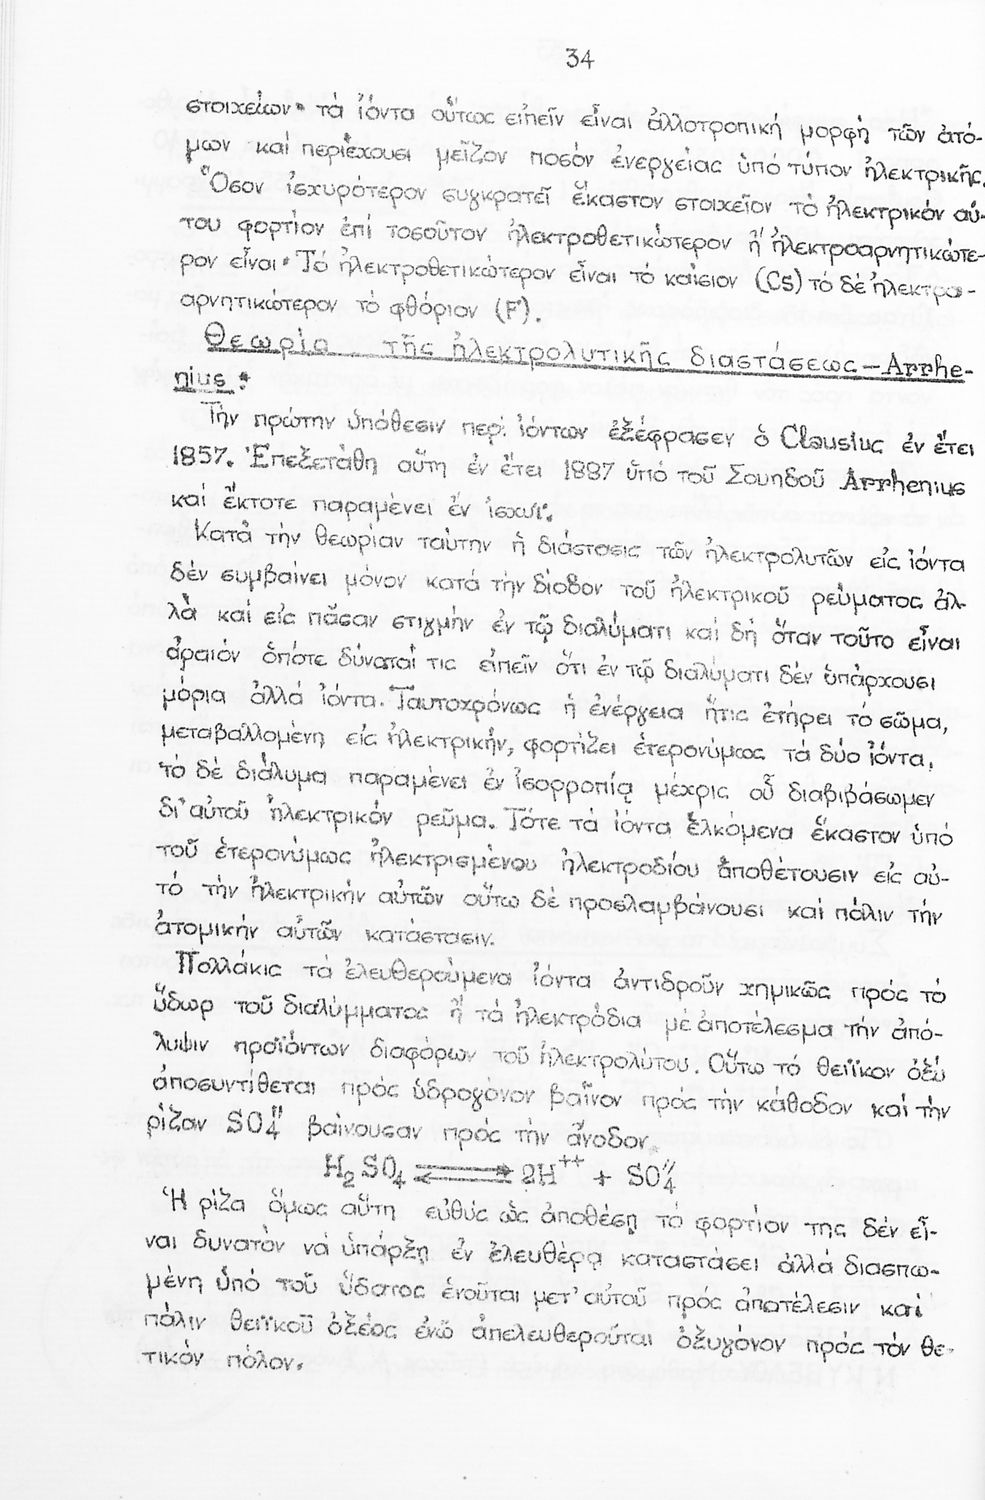 34
στοιχείων· τὰ ἰόντα οὕτως εἰπεῖν εἶναι ἀλλοτροπική μορφή τῶν ἀτό-
μων καί περιέχουσι μεῖζον ποσόν ἐνεργείας ὑπό τύπον ἠλεκτρικῆς.
Ὅσον ἰσχυρότερον συγκρατεῖ ἕκαστον στοιχεῖον τό ἠλεκτρικόν αὑ-
του φορτίον ἐπί τοσοῦτον ἠλεκτροθετικώτερον ἤ ἠλεκτροαρνητικώτε-
ρον εἶναι· Τό ἠλεκτροθετικώτερον εἶναι τό καίσιον (Cs) τό δέ ἠλεκτρο-
αρνητικώτερον τό φθόριον (F).
Θεωρία τῆς ἠλεκτρολυτικῆς διαστάσεως – Arrhe-
nius:
Τήν πρώτην ὑπόθεσιν περί ἰόντων ἐξέφρασεν ὁ Clausius ἐν ἔτει
1857. Ἐπεξετάθη αὕτη ἐν ἔτει 1887 ὑπό τοῦ Σουηδοῦ Arrhenius
καί ἔκτοτε παραμένει ἐν ἰσχυί.
Κατά τήν θεωρίαν ταύτην ἡ διάστασις τῶν ἠλεκτρολυτῶν εἰς ἰόντα
δέν συμβαίνει μόνον κατά τήν δίοδον τοῦ ἠλεκτρικοῦ ρεύματος ἀλ-
λά καί εἰς πᾶσαν στιγμήν ἐν τῷ διαλύματι καί δή ὅταν τοῦτο εἶναι
ἀραιόν ὁπότε δύναταί τις εἰπεῖν ὅτι ἐν τῷ διαλύματι δέν ὑπάρχουσι
μόρια ἀλλά ἰόντα. Ταυτοχρόνως ἡ ἐνέργεια ἥτις ἐτήρει τό σῶμα,
μεταβαλλομένη εἰς ἠλεκτρικήν, φορτίζει ἑτερονύμως τά δύο ἰόντα,
τό δέ διάλυμα παραμένει ἐν ἰσορροπίᾳ μέχρις οὗ διαβιβάσωμεν
δι' αὐτοῦ ἠλεκτρικόν ρεῦμα. Τότε τά ἰόντα ἑλκόμενα ἕκαστον ὑπό
τοῦ ἑτερονύμως ἠλεκτρισμένου ἠλεκτροδίου ἀποθέτουσιν εἰς αὐ-
τό τήν ἠλεκτρικήν αὐτῶν οὕτω δέ προσλαμβάνουσι καί πάλιν τήν
ἀτομικήν αὐτῶν κατάστασιν.
Πολλάκις τά ἐλευθερούμενα ἰόντα ἀντιδροῦν χημικῶς πρός τό
ὕδωρ τοῦ διαλύμματος ἤ τά ἠλεκτρόδια μέ ἀποτέλεσμα τήν ἀπό-
λυψιν προϊόντων διαφόρων τοῦ ἠλεκτρολύτου. Οὕτω τό θειϊκον ὀξύ
ἀποσυντίθεται πρός ὑδρογόνον βαῖνον πρός τήν κάθοδον καί τήν
ρίζαν SO₄'' βαίνουσαν πρός τήν ἄνοδον.
H₂SO₄ ⇌ 2H⁺⁺ + SO₄''
Ἡ ρίζα ὅμως αὕτη εὐθύς ὡς ἀποθέσῃ τό φορτίον της δέν εἶ-
ναι δυνατόν νά ὑπάρξῃ ἐν ἐλευθέρᾳ καταστάσει ἀλλά διασπω-
μένη ὑπό τοῦ ὕδατος ἑνοῦται μετ' αὐτοῦ πρός ἀποτέλεσιν καί
πάλιν θειϊκοῦ ὀξέος ἐνῶ ἀπελευθεροῦται ὀξυγόνον πρός τόν θε-
τικόν πόλον.